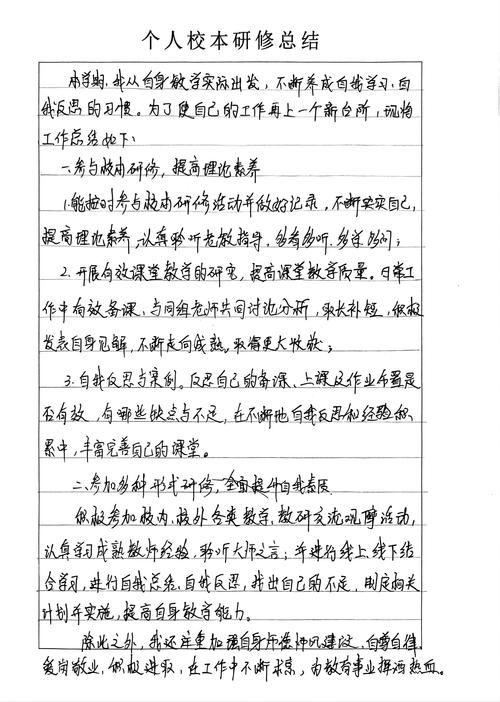 个人校本研修总结
本学期，我从自身教学实际出发，不断养成自我学习、自
我反思的习惯。为了使自己的工作再上一个新台阶，现将
工作总结如下：
一、参与校内研修，提高理论素养
1.能按时参与校内研修活动并做好记录，不断充实自己，
提高理论素养，认真聆听老教指导，多看多听、多学多问；
2.开展有效课堂教学的研究，提高课堂教学质量。日常工
作中有效备课、与同组老师共同讨论分析，取长补短，积极
发表自身见解，不断走向成熟，取得更大收获；
3.自我反思与案例。反思自己的备课、上课及作业布置是
否有效，有哪些缺点与不足，在不断地自我反思和经验积
累中，丰富完善自己的课堂。
二、参加多种形式研修，全面提升自我素质
积极参加校内、校外各类教学、教研交流观摩活动，
认真学习成熟教师经验，聆听大师之言；并进行线上、线下结
合学习，进行自我总结、自我反思，找出自己的不足，制定相关
计划并实施，提高自身教学能力。
除此之外，我还注重加强自身师德师风建设，自尊自律，
爱岗敬业，积极进取，在工作中不断求索，为教育事业挥洒热血。